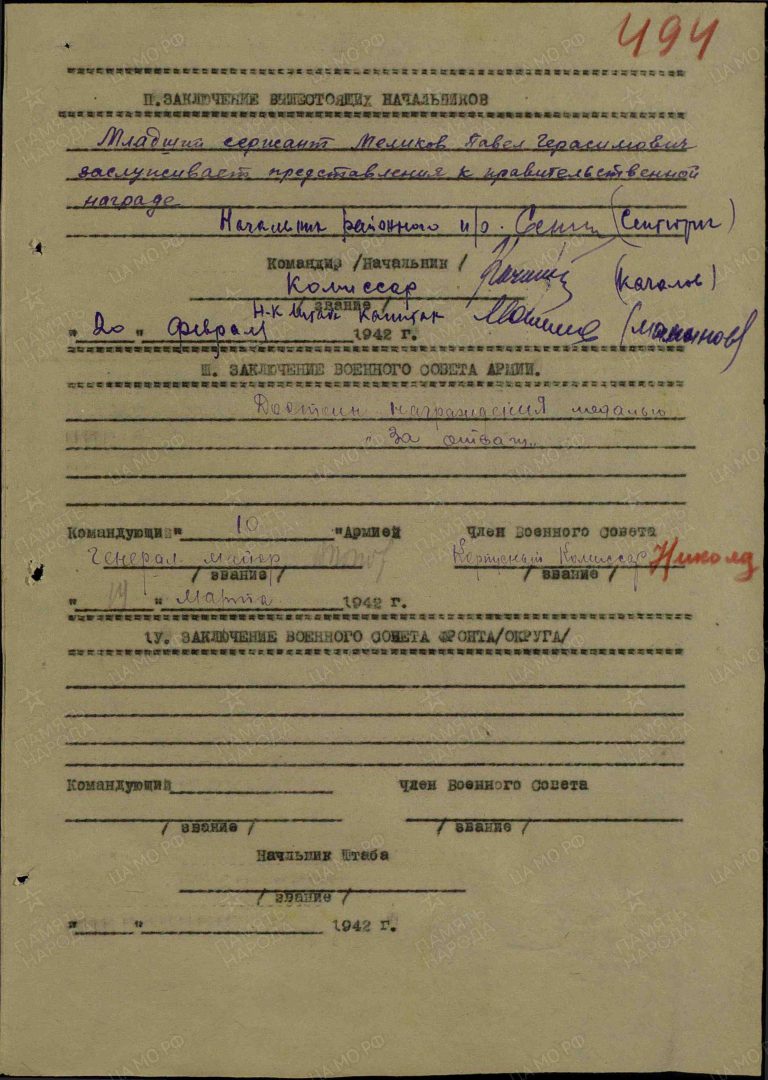 494
П.ЗАКЛЮЧЕНИЕ ВЫШЕСТОЯЩИХ НАЧАЛЬНИКОВ
Младший сержант Меликов Павел Герасимович
заслуживает представления к правительственной
награде
Начальник районного п/о.
Командир /Начальник/
Комиссар (Качалов)
/звание/
Н-к штаба Капитан
"20" Февраля 1942 г.
Ш. ЗАКЛЮЧЕНИЕ ВОЕННОГО СОВЕТА АРМИИ.
Достоин награждения медалью
"За отвагу"
Командующий "10" Армией Член Военного Совета
Генерал майор
/звание/ /звание/
"14" Марта 1942 г.
1У. ЗАКЛЮЧЕНИЕ ВОЕННОГО СОВЕТА ФРОНТА/ОКРУГА/
Командующий Член Военного Совета
/звание/ /звание/
Начльник Штаба
/звание/
" " 1942 г.
ПАМЯТЬ НАРОДА
ЦА МО РФ